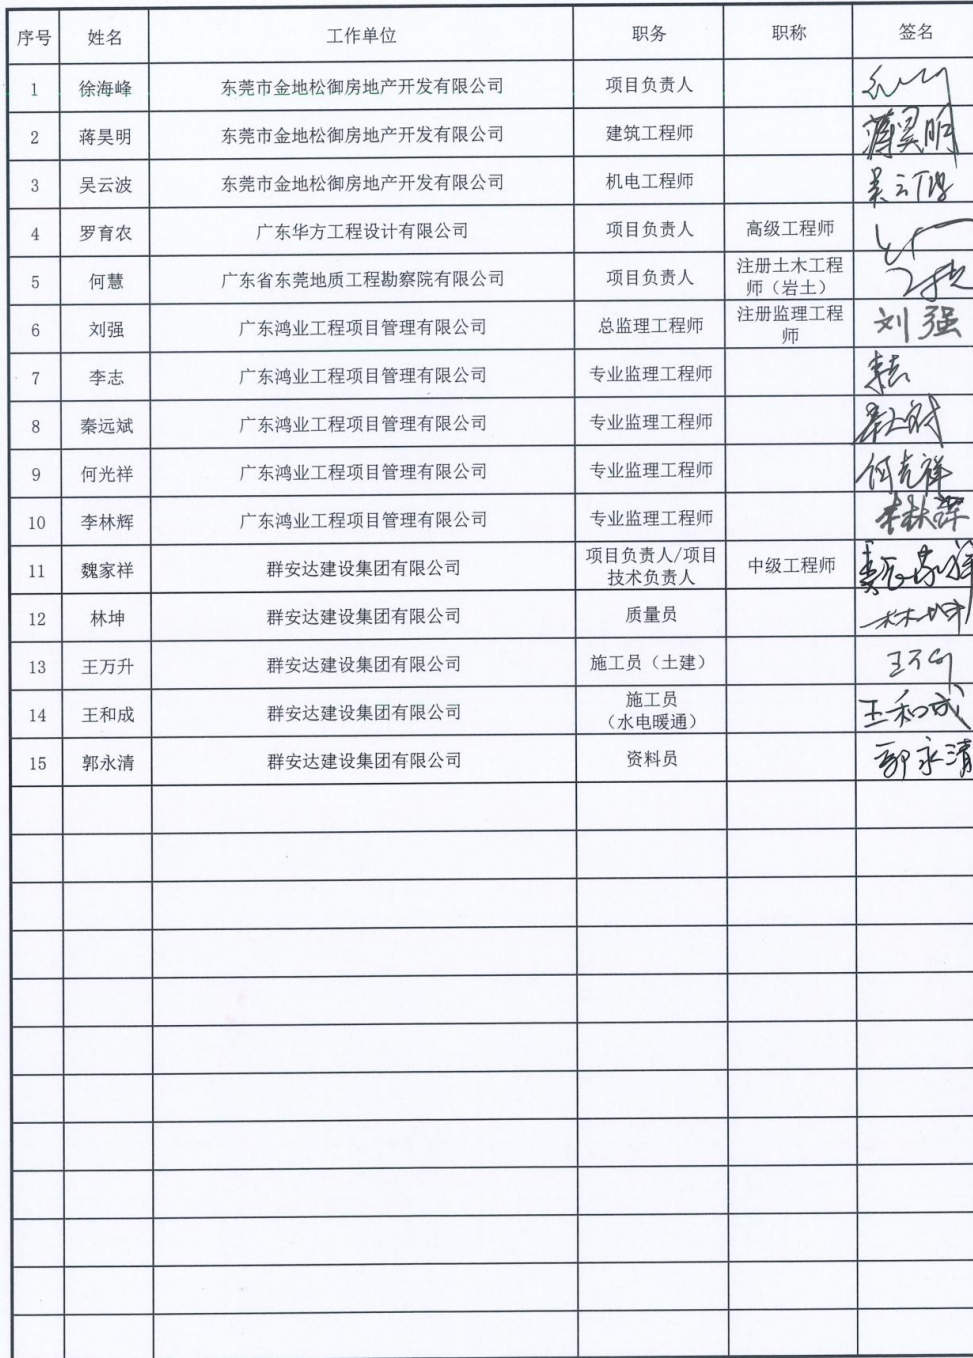 序号 姓名 工作单位 职务 职称 签名
1 徐海峰 东莞市金地松御房地产开发有限公司 项目负责人
2 蒋昊明 东莞市金地松御房地产开发有限公司 建筑工程师 蒋昊明
3 吴云波 东莞市金地松御房地产开发有限公司 机电工程师 吴云波
4 罗育农 广东华方工程设计有限公司 项目负责人 高级工程师
5 何慧 广东省东莞地质工程勘察院有限公司 项目负责人 注册土木工程
师（岩土）
6 刘强 广东鸿业工程项目管理有限公司 总监理工程师 注册监理工程
师 刘强
7 李志 广东鸿业工程项目管理有限公司 专业监理工程师 李志
8 秦远斌 广东鸿业工程项目管理有限公司 专业监理工程师
9 何光祥 广东鸿业工程项目管理有限公司 专业监理工程师 何光祥
10 李林辉 广东鸿业工程项目管理有限公司 专业监理工程师 李林辉
11 魏家祥 群安达建设集团有限公司 项目负责人/项目
技术负责人 中级工程师 魏家祥
12 林坤 群安达建设集团有限公司 质量员 林坤
13 王万升 群安达建设集团有限公司 施工员（土建） 王万升
14 王和成 群安达建设集团有限公司 施工员
（水电暖通） 王和成
15 郭永清 群安达建设集团有限公司 资料员 郭永清